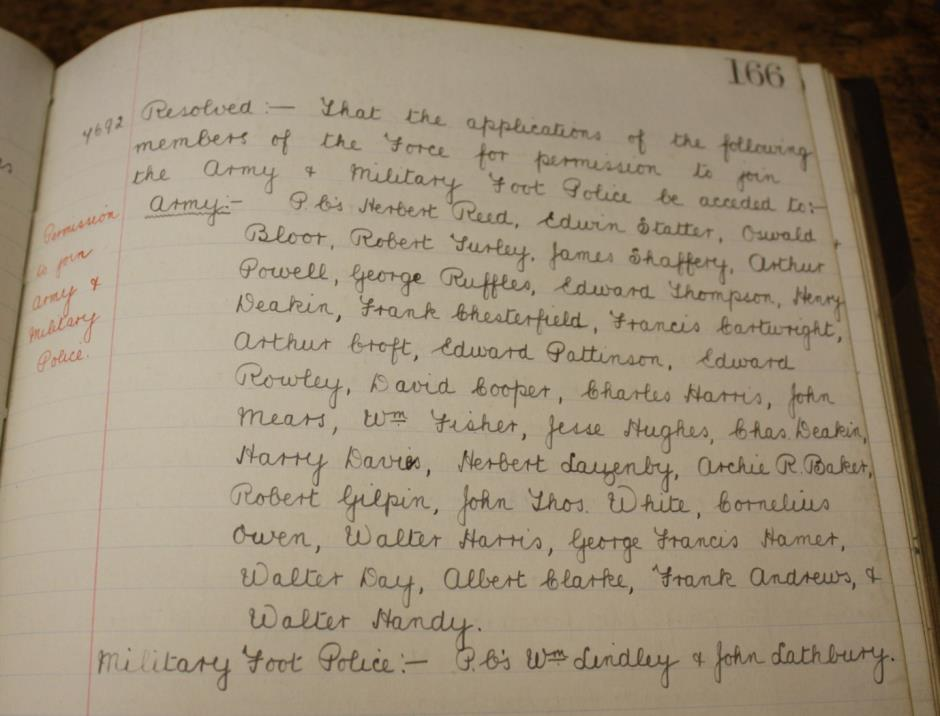 166
4692 Resolved :— That the applications of the following
members of the Force for permission to join
the Army & Military Foot Police be acceded to:—
Permission
to join
Army &
Military
Police.
Army:— P.C's Herbert Reed, Edwin Statter, Oswald
Bloor, Robert Turley, James Shaffery, Arthur
Powell, George Ruffles, Edward Thompson, Henry
Deakin, Frank Chesterfield, Francis Cartwright,
Arthur Croft, Edward Pattinson, Edward
Rowley, David Cooper, Charles Harris, John
Mears, Wm Fisher, Jesse Hughes, Chas. Deakin,
Harry Davies, Herbert Lazenby, Archie R. Baker,
Robert Gilpin, John Thos. White, Cornelius
Owen, Walter Harris, George Francis Hamer,
Walter Day, Albert Clarke, Frank Andrews, &
Walter Handy.
Military Foot Police:— P.C's Wm Lindley & John Lathbury.